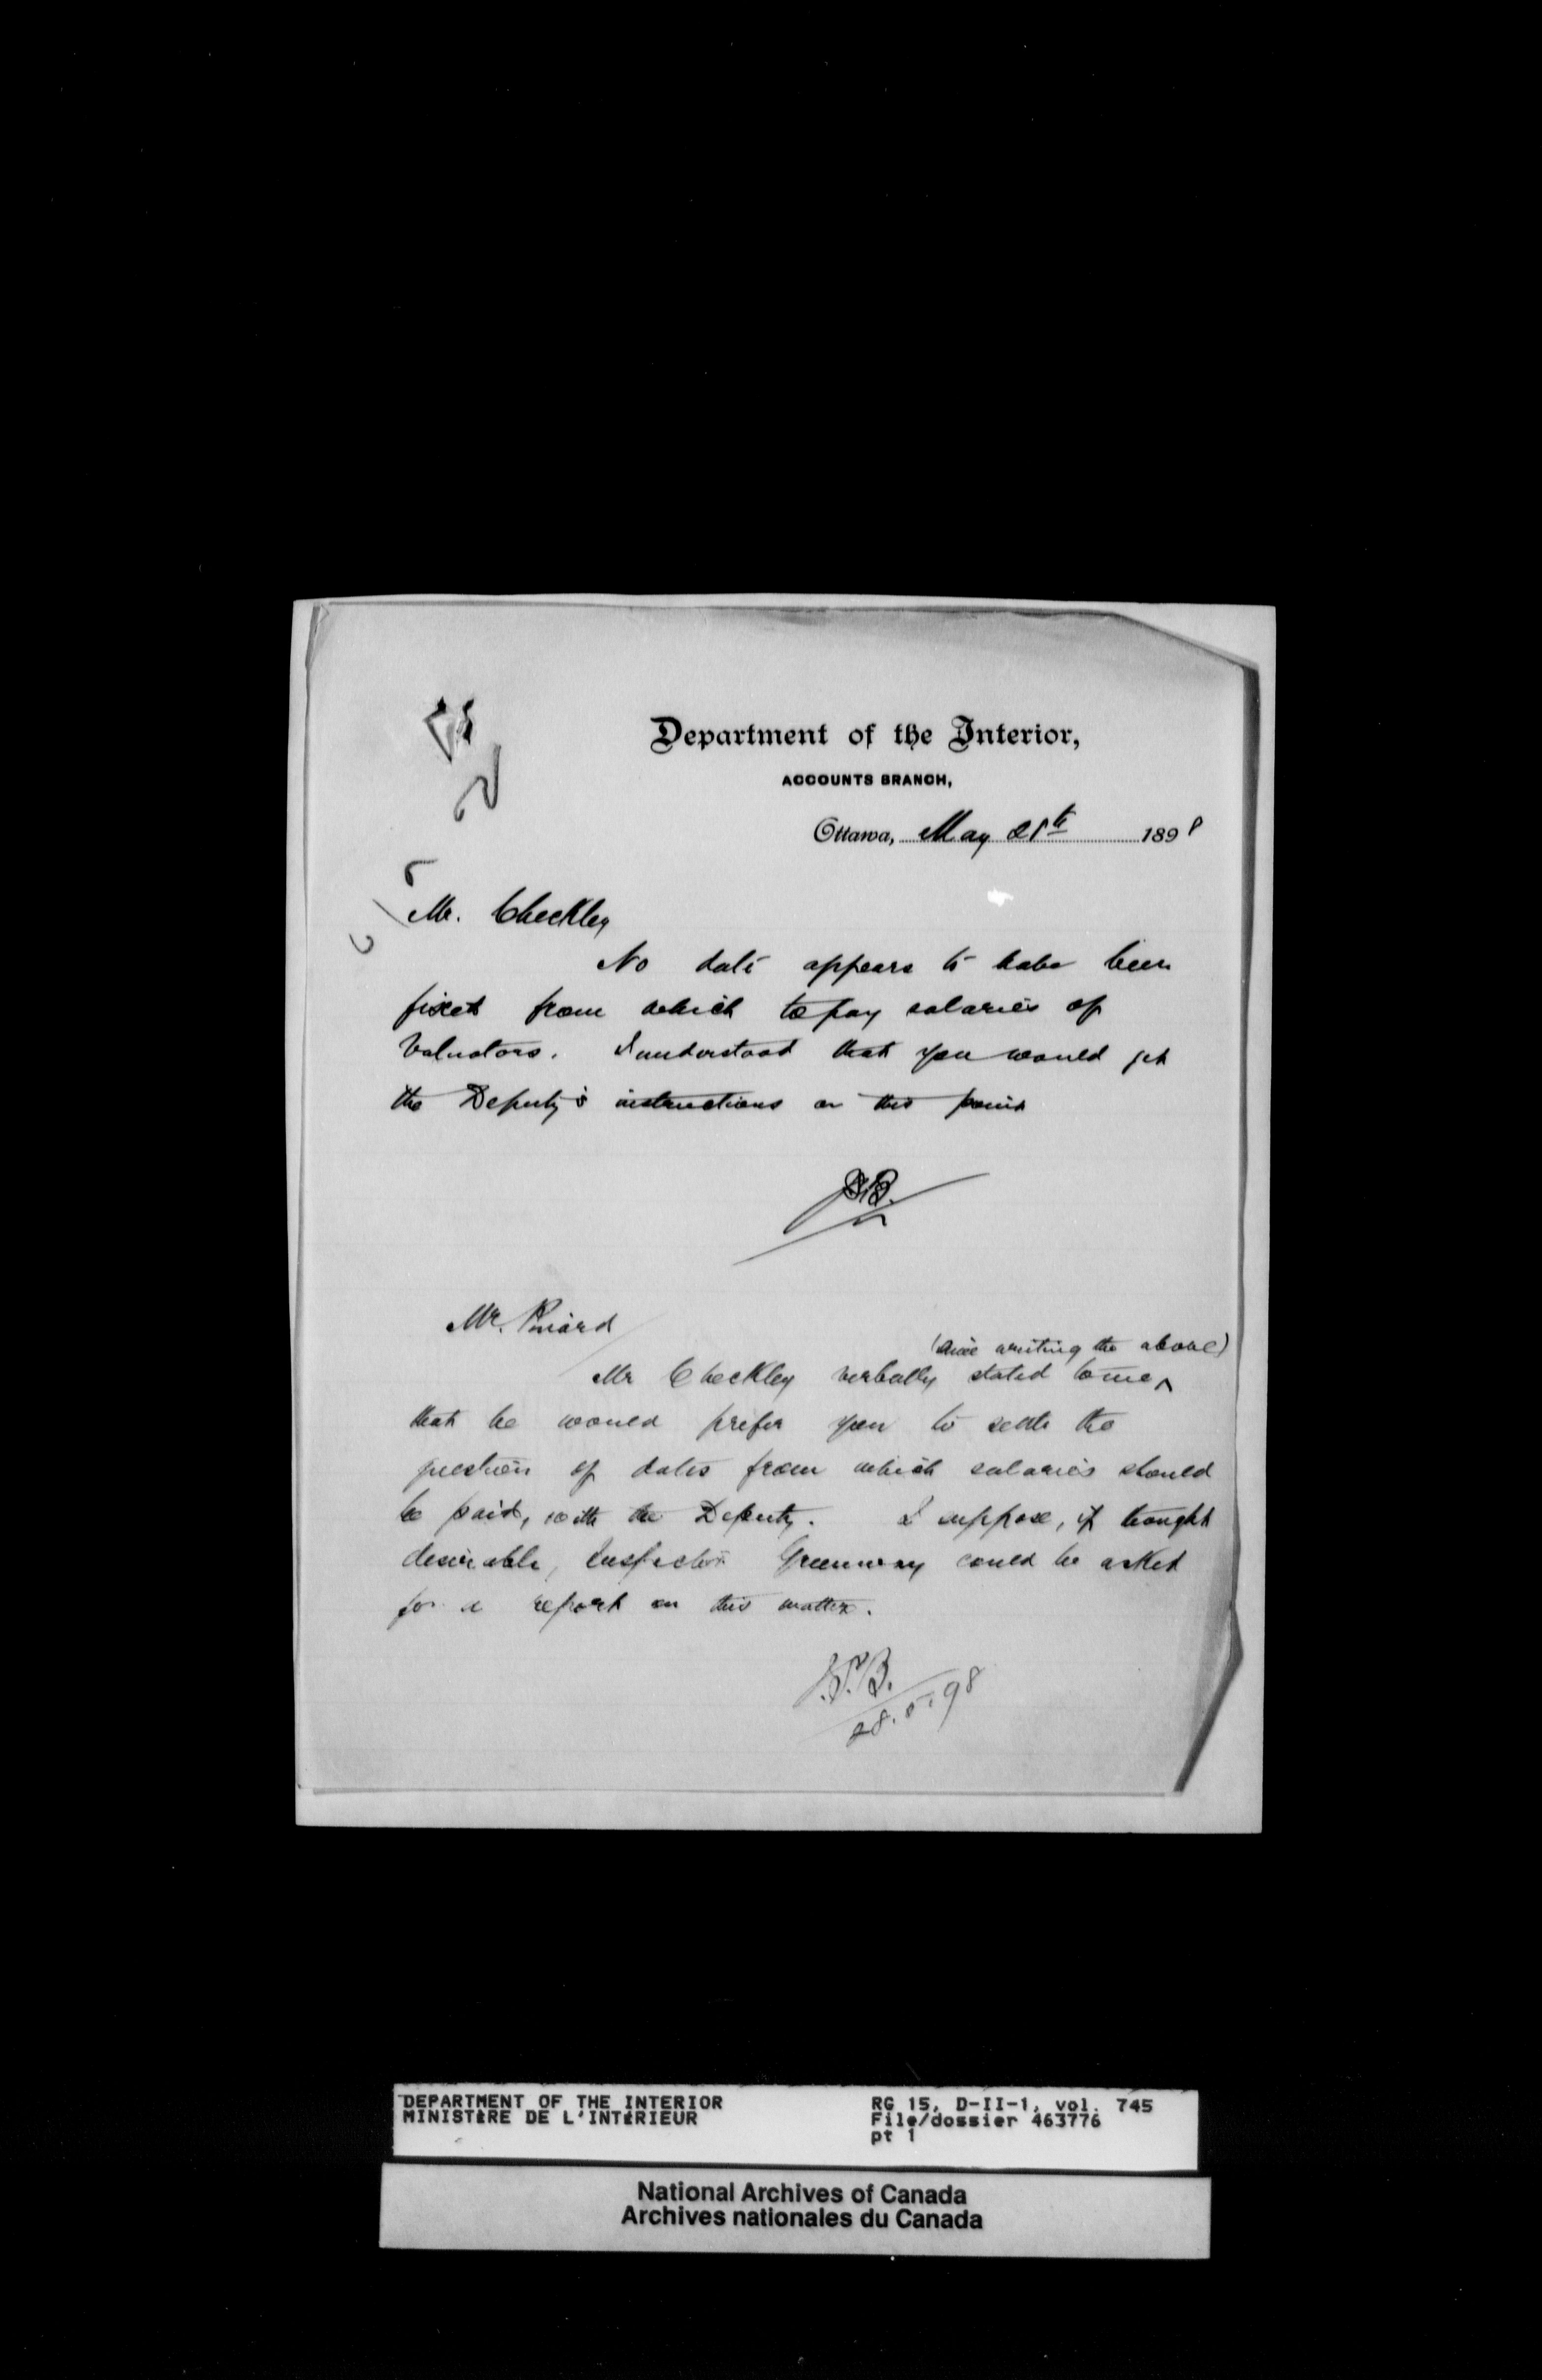 Department of the Interior,
ACCOUNTS BRANCH,
Ottawa, May 28th 1898
Mr. Checkley
No date appears to have been
fixed from which to pay salaries of
Valuators. I understood that you would get
the Deputy's instructions on this point
Mr. Pinard
(since writing the above)
Mr Checkley verbally stated to me ^
that he would prefer you to settle the
question of dates from which salaries should
be paid, with the Deputy. I suppose, if thought
desirable, Inspector Greenway could be asked
for a report on this matter.
J.P.B.
28.5.98
DEPARTMENT OF THE INTERIOR
MINISTÈRE DE L'INTÉRIEUR
RG 15, D-II-1, vol. 745
File/dossier 463776
pt 1
National Archives of Canada
Archives nationales du Canada